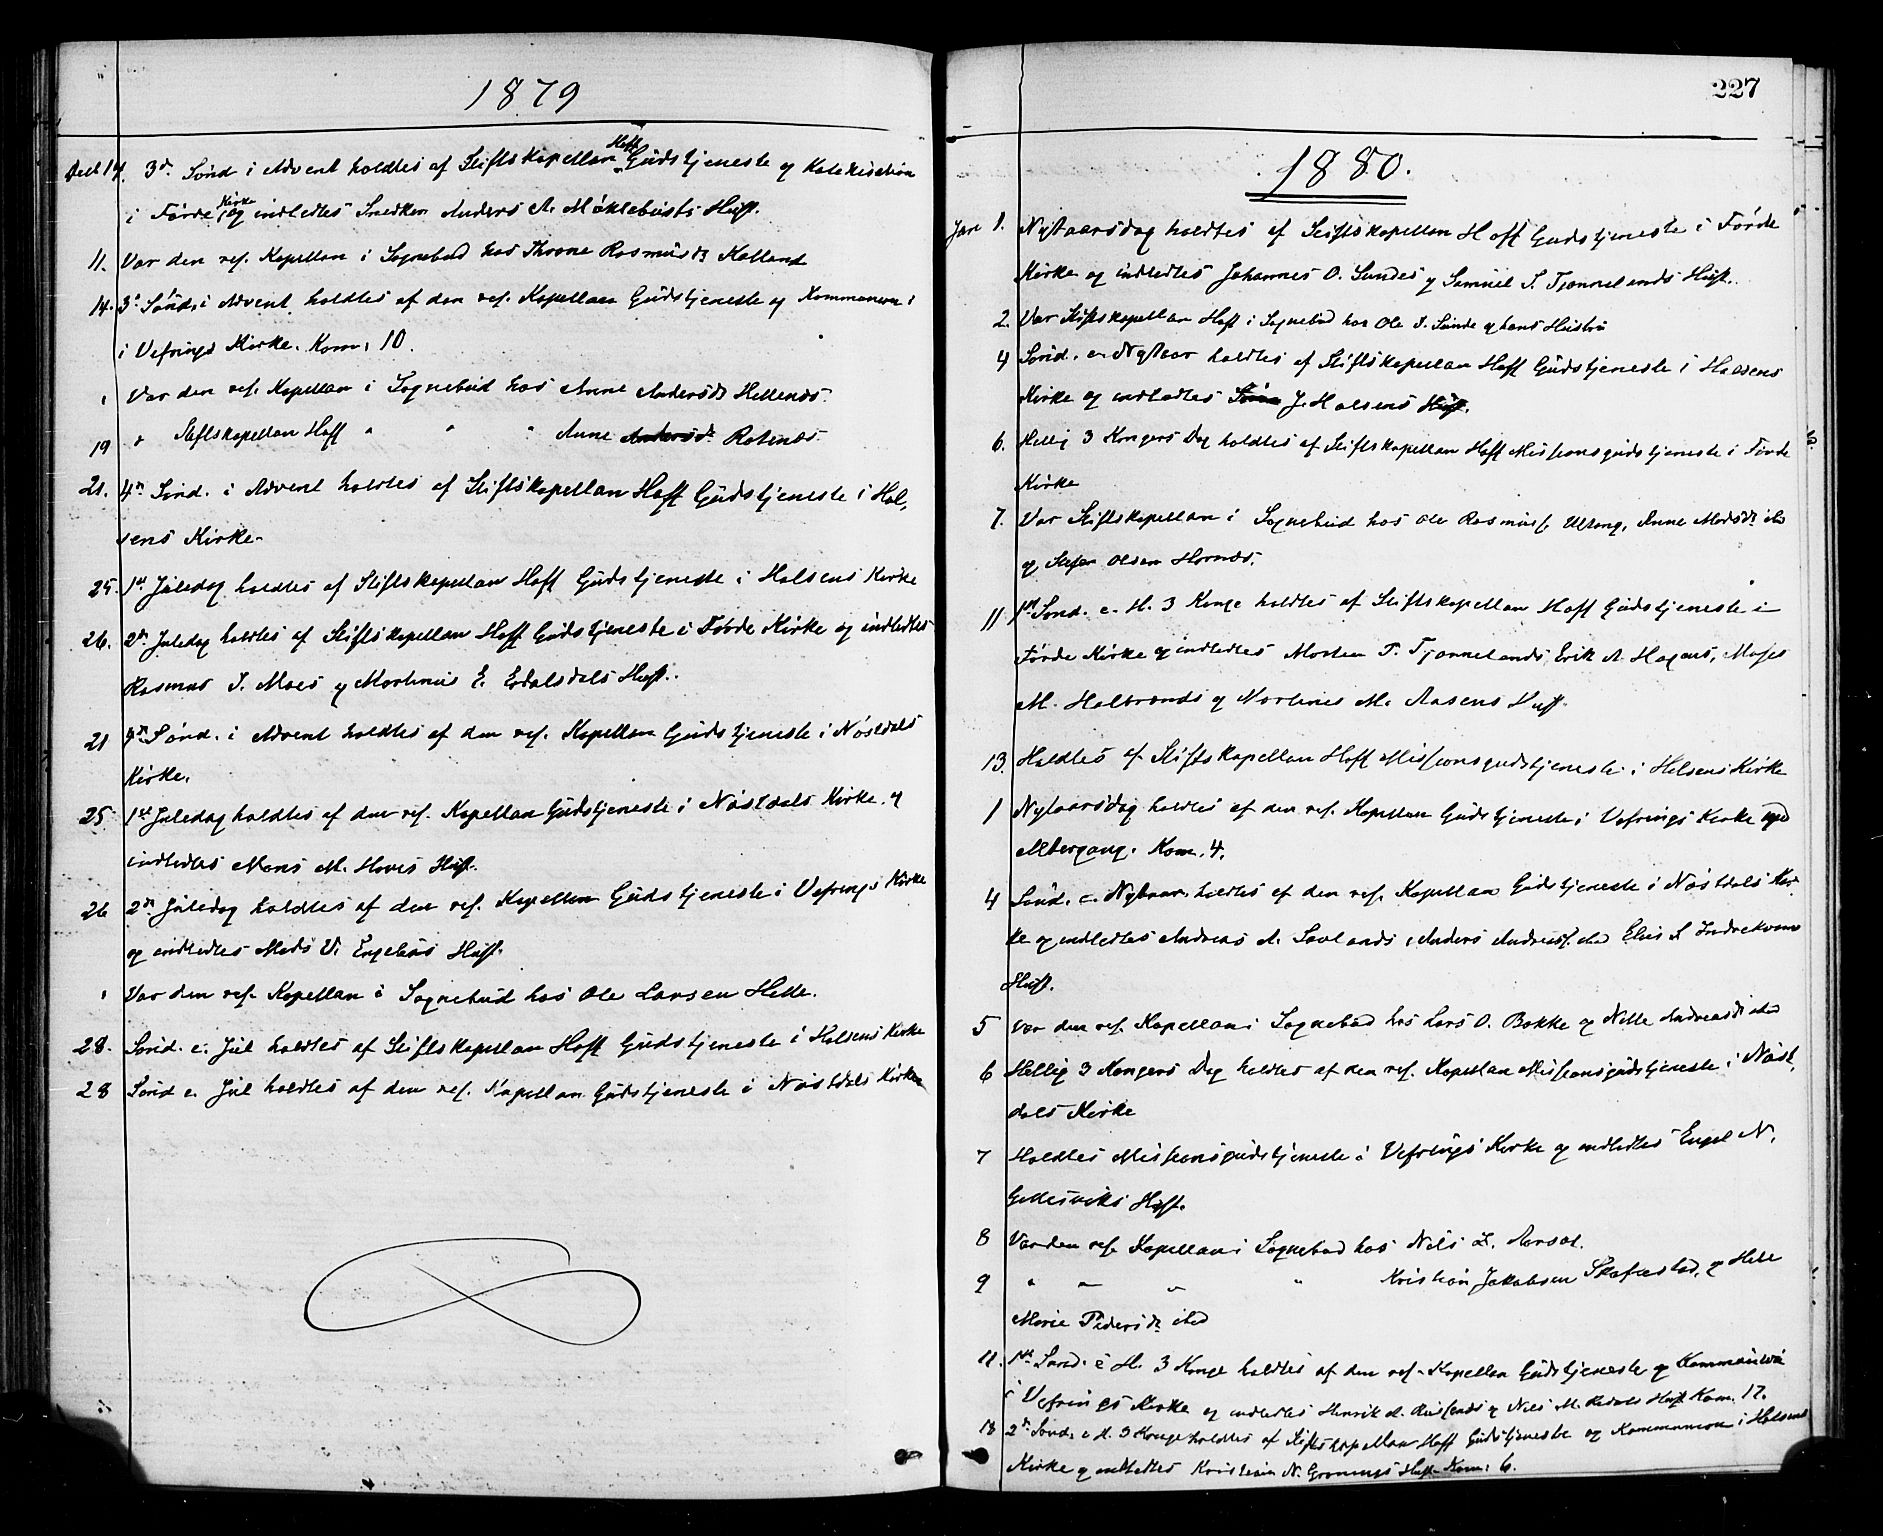 1879
Decb 14. 3d. Sønd i Advent holdtes af Stiftskapellan Hoff Gudstjeneste og Katekisation
i Førde Kirke og indledtes Snedker Anders A. Møklebusts Hust.
11. Var den res. Kapellan i Sognebud hos Throne Rasmusdt Kalland
14. 3d Sønd. i Advent holdtes af den res. Kapellan Gudstjeneste og Kommunion
i Vefrings Kirke. Kom: 10.
" Var den res. Kapellan i Sognebud hos Anne Andersdt Hellenes.
19 " Stiftskapellan Hoff " " " Anne Andersdt. Rotenes.
21. 4de Sønd. i Advent holdtes af Stiftskapellan Hoff Gudstjeneste i Hol,
sens Kirke.
25. 1st Juledag holdtes af Stiftskapellan Hoff Gudstjeneste i Holsens Kirke
26. 2den Juledag holdtes af Stiftskapellan Hoff Gudstjeneste i Førde Kirke og indledtes
Rasmus J. Moes og Mortinus E. Erdalsdals Hust.
21 4de Sønd. i Advent holdtes af den res. Kapellan Gudstjeneste i Nøstdals
Kirke.
25 1st Juledag holdtes af den res. Kapellan Gudstjeneste i Nøstdals Kirke. og
indledtes Mons M. Hoves Hust.
26 2den Juledag holdtes af den res. Kapellan Gudstjeneste i Vefrings Kirke
og indledtes Mads V. Engebøs Hust.
" Var den res. Kapellan i Sognebud hos Ole Larsen Helle.
28. Sønd. e. Jul holdtes af Stiftskapellan Hoff Gudstjeneste i Holsens Kirke
28 Sønd e. Jul holdtes af den res. Kapellan Gudstjeneste i Nøstdals Kirke
227
1880.
Jan 1. Nytaarsdag holdtes af Stiftskapellan Hoff Gudstjeneste i Førde
Kirke og indledtes Johannes O. Sundes og Samuel S. Tjønnelands Hust.
2. Var Stiftskapellan Hoff i Sognebud hos Ole J. Sunde og hans Hustru
4 Sønd. e. Nytaar holdtes af Stiftskapellan Hoff Gudstjeneste i Holsens
Kirke og indledtes J. Holsens Hust.
6. Hellig 3 Kongers Dag holdtes af Stiftskapellan Hoff Missionsgudstjeneste i Førde
Kirke
7. Var Stiftskapellan i Sognebud hos Ole Rasmuss. Ultang, Anne Madsdt ibd
og Olsen Hornes.
11 1st Sønd. e. H. 3 Konge holdtes af Stiftskapellan Hoff Gudstjeneste i
Førde Kirke og indledtes Morten P. Tjønnelands, Erik A. Hagens, Moses
M. Halbrends og Mortines M. Aasens Hust.
13. Holdtes af Stiftskapellan Hoff Missionsgudstjeneste i Holsens Kirke
1 Nytaarsdag holdtes af den res. Kapellan Gudstjeneste i Vefrings Kirke med
Altergang. Kom. 4.
4 Sønd. e. Nytaar holdtes af den res. Kapellan Gudstjeneste i Nøstdals Kir,
ke og indledtes Andreas A. Savlands, Anders Andreass. ibd Elias L. Indrekvams
Hust.
5 Var den res. Kapellan i Sognebud hos Lars O. Bakke og Nille Andreasdt ibd
6 Hellig 3 Kongers Dag holdtes af den res. Kapellan Missionsgudstjeneste i Nøst,
dals Kirke
7 Holdtes Missionsgudstjeneste i Vefrings Kirke og indledtes Engel N.
Hust.
8 Var den res. Kapellan i Sognebud hos Nils L. Aarsøt.
9 " " " " Kristian Jakobsen Skafnestad, og Helle
Marie Pedersdt ibd
11. 1st Sønd. e H. 3 Konge holdtes af den res. Kapellan Gudstjeneste og Kommunion
i Vefrings Kirke og indledtes Henrik A. og Nils M. Hust Kom. 17.
18 2den Sønd. e H. 3 Konge holdtes af Stiftskapellan Hoff Gudstjeneste og Kommunion i Holsens
Kirke og indledtes Kristian N. Grønnings Hust. Kom: 6.